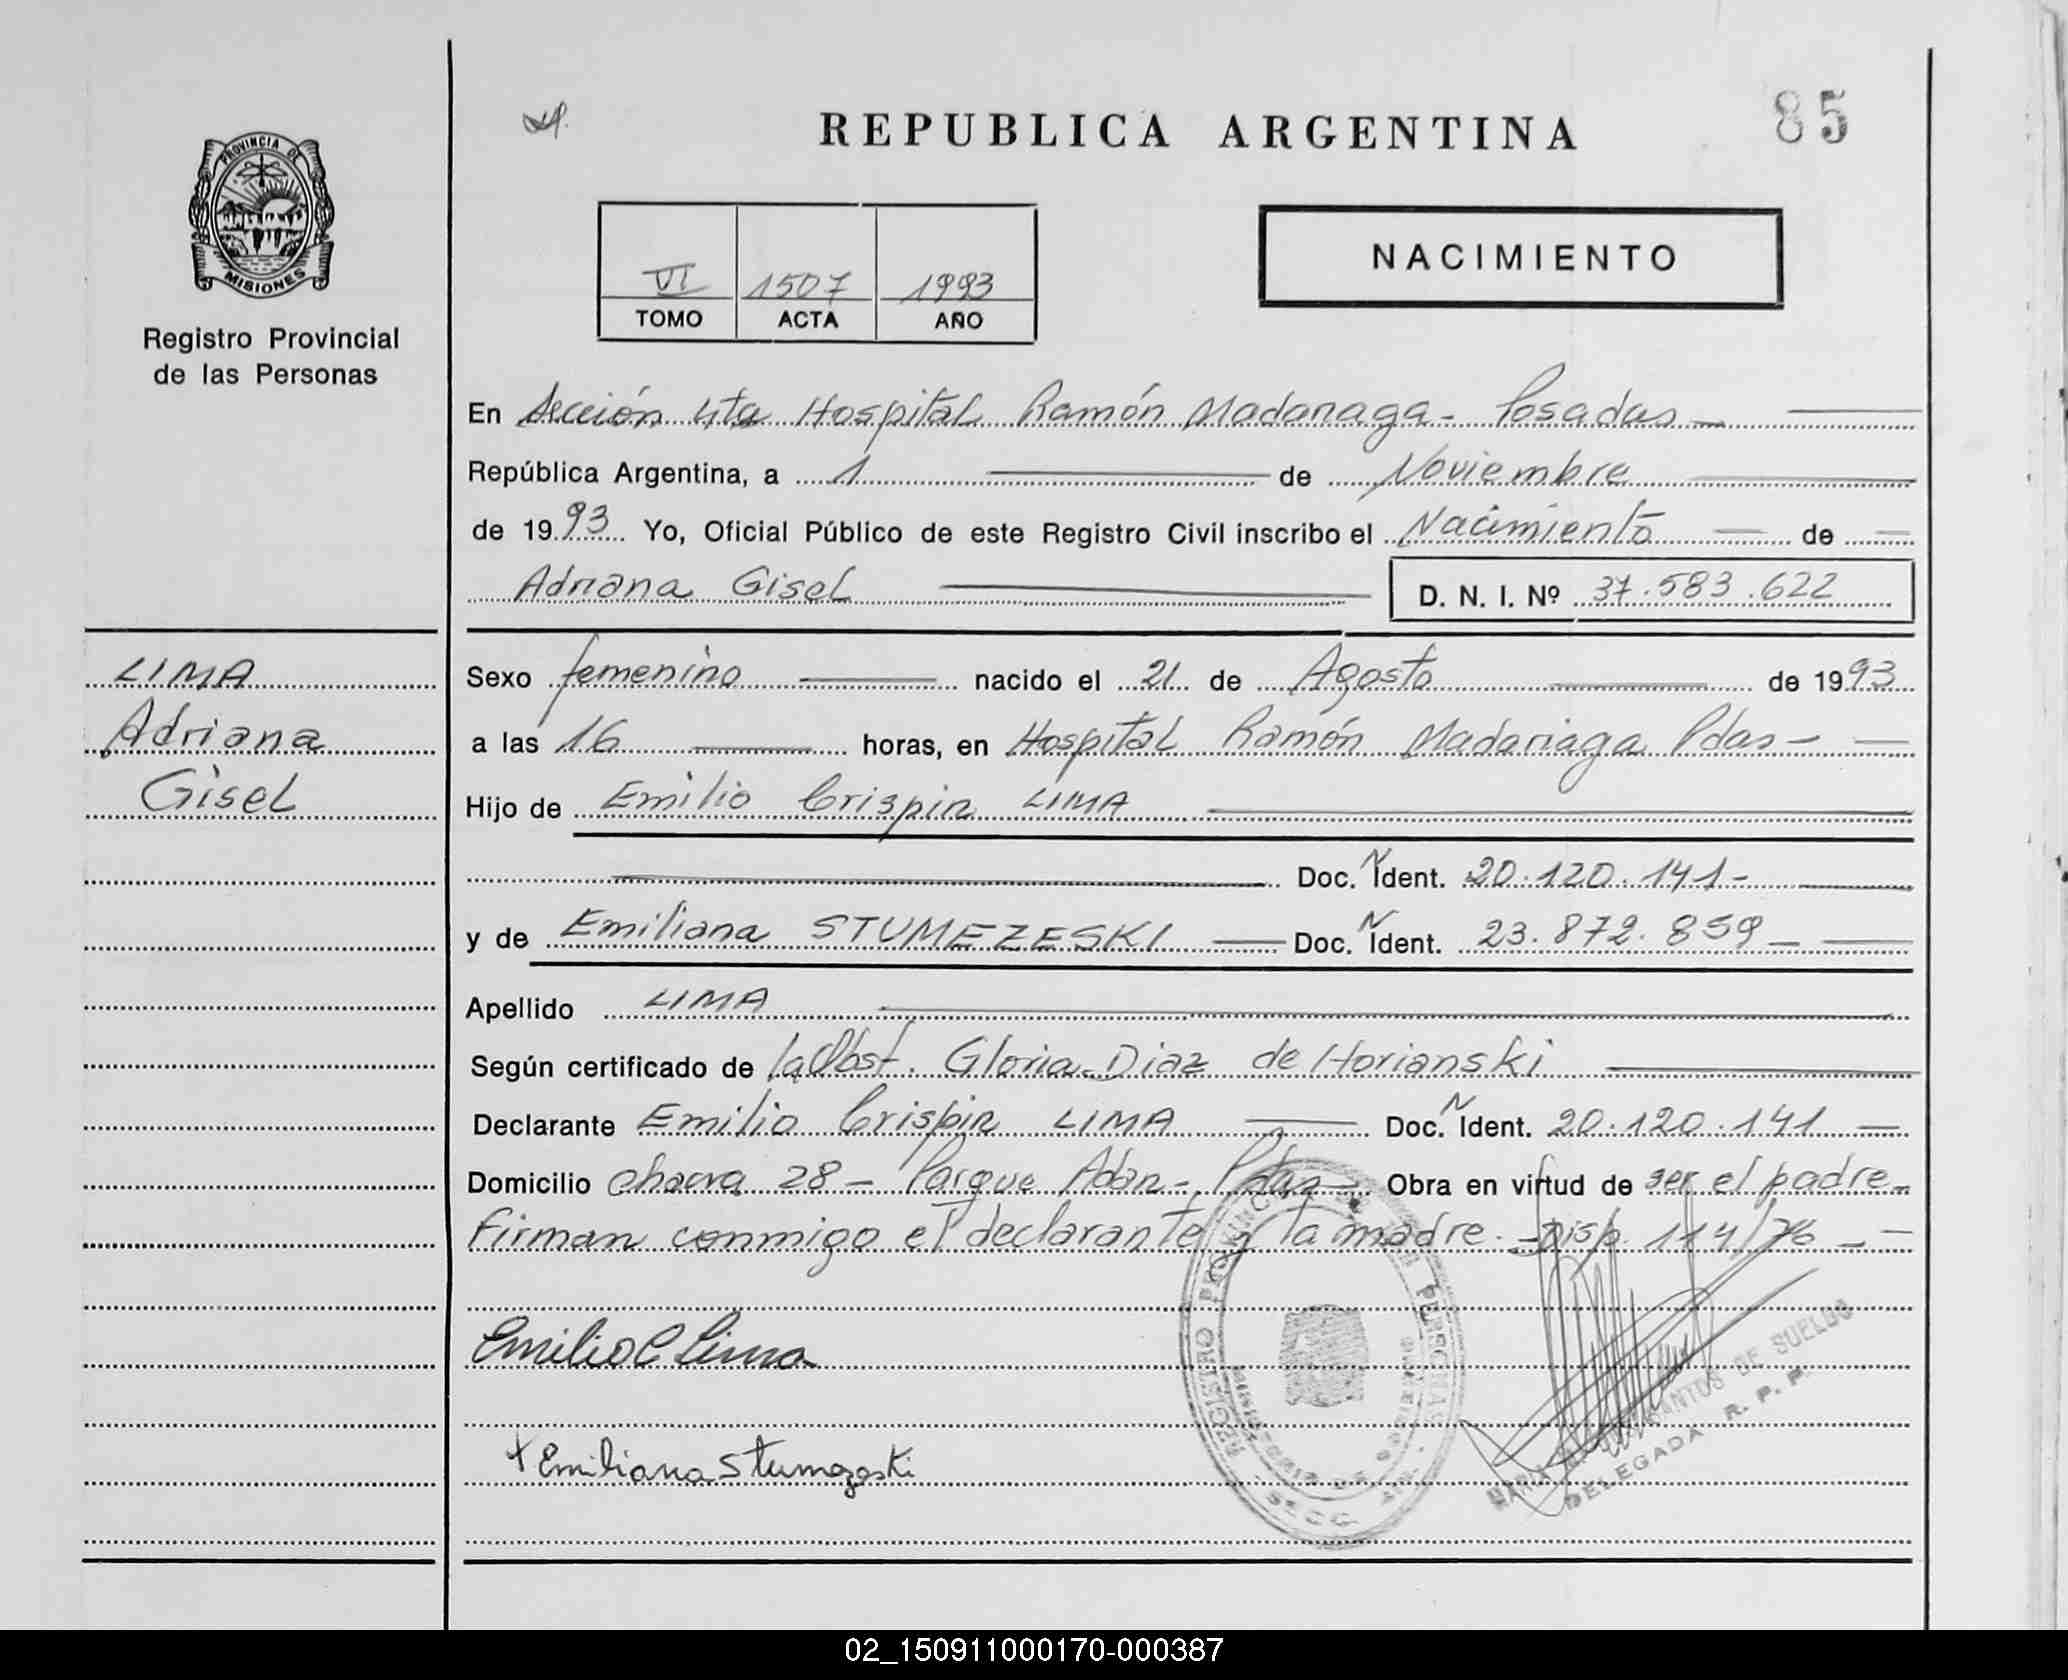 85
REPUBLICA ARGENTINA
PROVINCIA DE
MISIONES
Registro Provincial
de las Personas
NACIMIENTO
VI 1507 1993
TOMO ACTA AÑO
En Sección 4ta Hospital Ramón Madariaga - Posadas -
República Argentina, a 1 de Noviembre
de 1993 Yo, Oficial Público de este Registro Civil inscribo el Nacimiento de
Adriana Gisel D. N. I. Nº 37.583.622
LIMA
Adriana
Gisel
Sexo femenino nacido el 21 de Agosto de 1993
a las 16 horas, en Hospital Ramón Madariaga Pdas -
Hijo de Emilio Crispin LIMA
Doc. N Ident. 20.120.141 -
y de Emiliana STUMEZESKI Doc. N Ident. 23.872.859 -
Apellido LIMA
Según certificado de la Obst. Gloria Diaz de Horianski
Declarante Emilio Crispin LIMA Doc. N Ident. 20.120.141
Domicilio chacra 28 - Parque Adan - Pdas - Obra en virtud de ser el padre -
Firman conmigo el declarante y la madre. - Disp. 114/76 -
Emilio C Lima
x Emiliana Stumezeski
REGISTRO PERSONAS
SANTOS DE SUELDO
DELEGADA R. P. P.
02_150911000170-000387